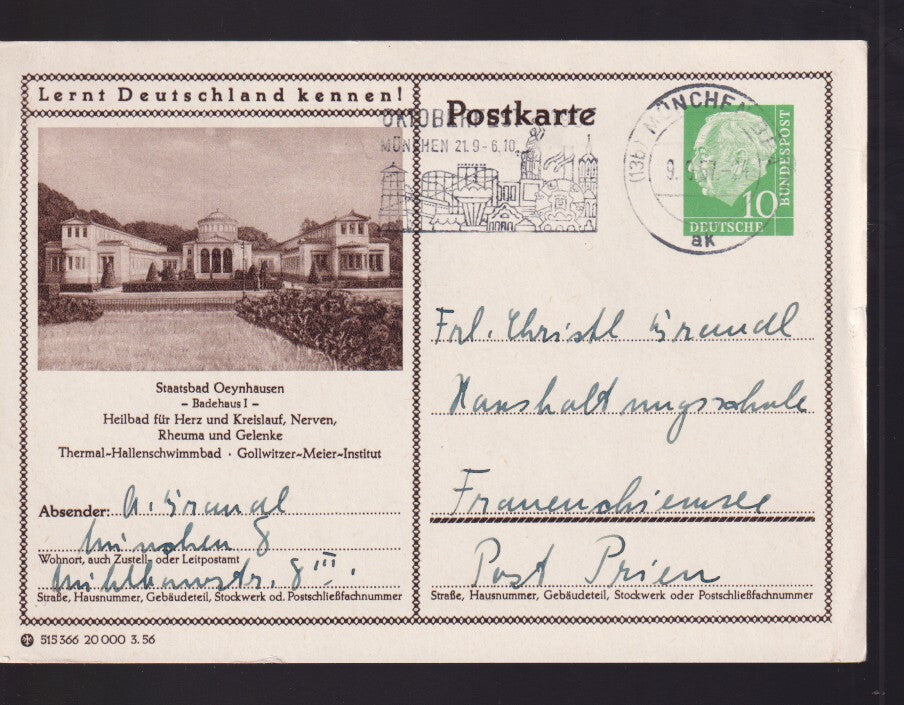 Lernt Deutschland kennen!
Staatsbad Oeynhausen
- Badehaus I -
Heilbad für Herz und Kreislauf, Nerven,
Rheuma und Gelenke
Thermal-Hallenschwimmbad · Gollwitzer-Meier-Institut
Absender: A. Grandl
München 8
Wohnort, auch Zustell- oder Leitpostamt
8 III.
Straße, Hausnummer, Gebäudeteil, Stockwerk od. Postschließfachnummer
515366 20 000 3.56
Postkarte
MÜNCHEN 21.9-6.10.
(13b) MÜNCHEN
9.
ak
10
DEUTSCHE
BUNDESPOST
Frl. Christl Grandl
Haushaltungsschule
Frauenchiemsee
Post Prien
Straße, Hausnummer, Gebäudeteil, Stockwerk oder Postschließfachnummer